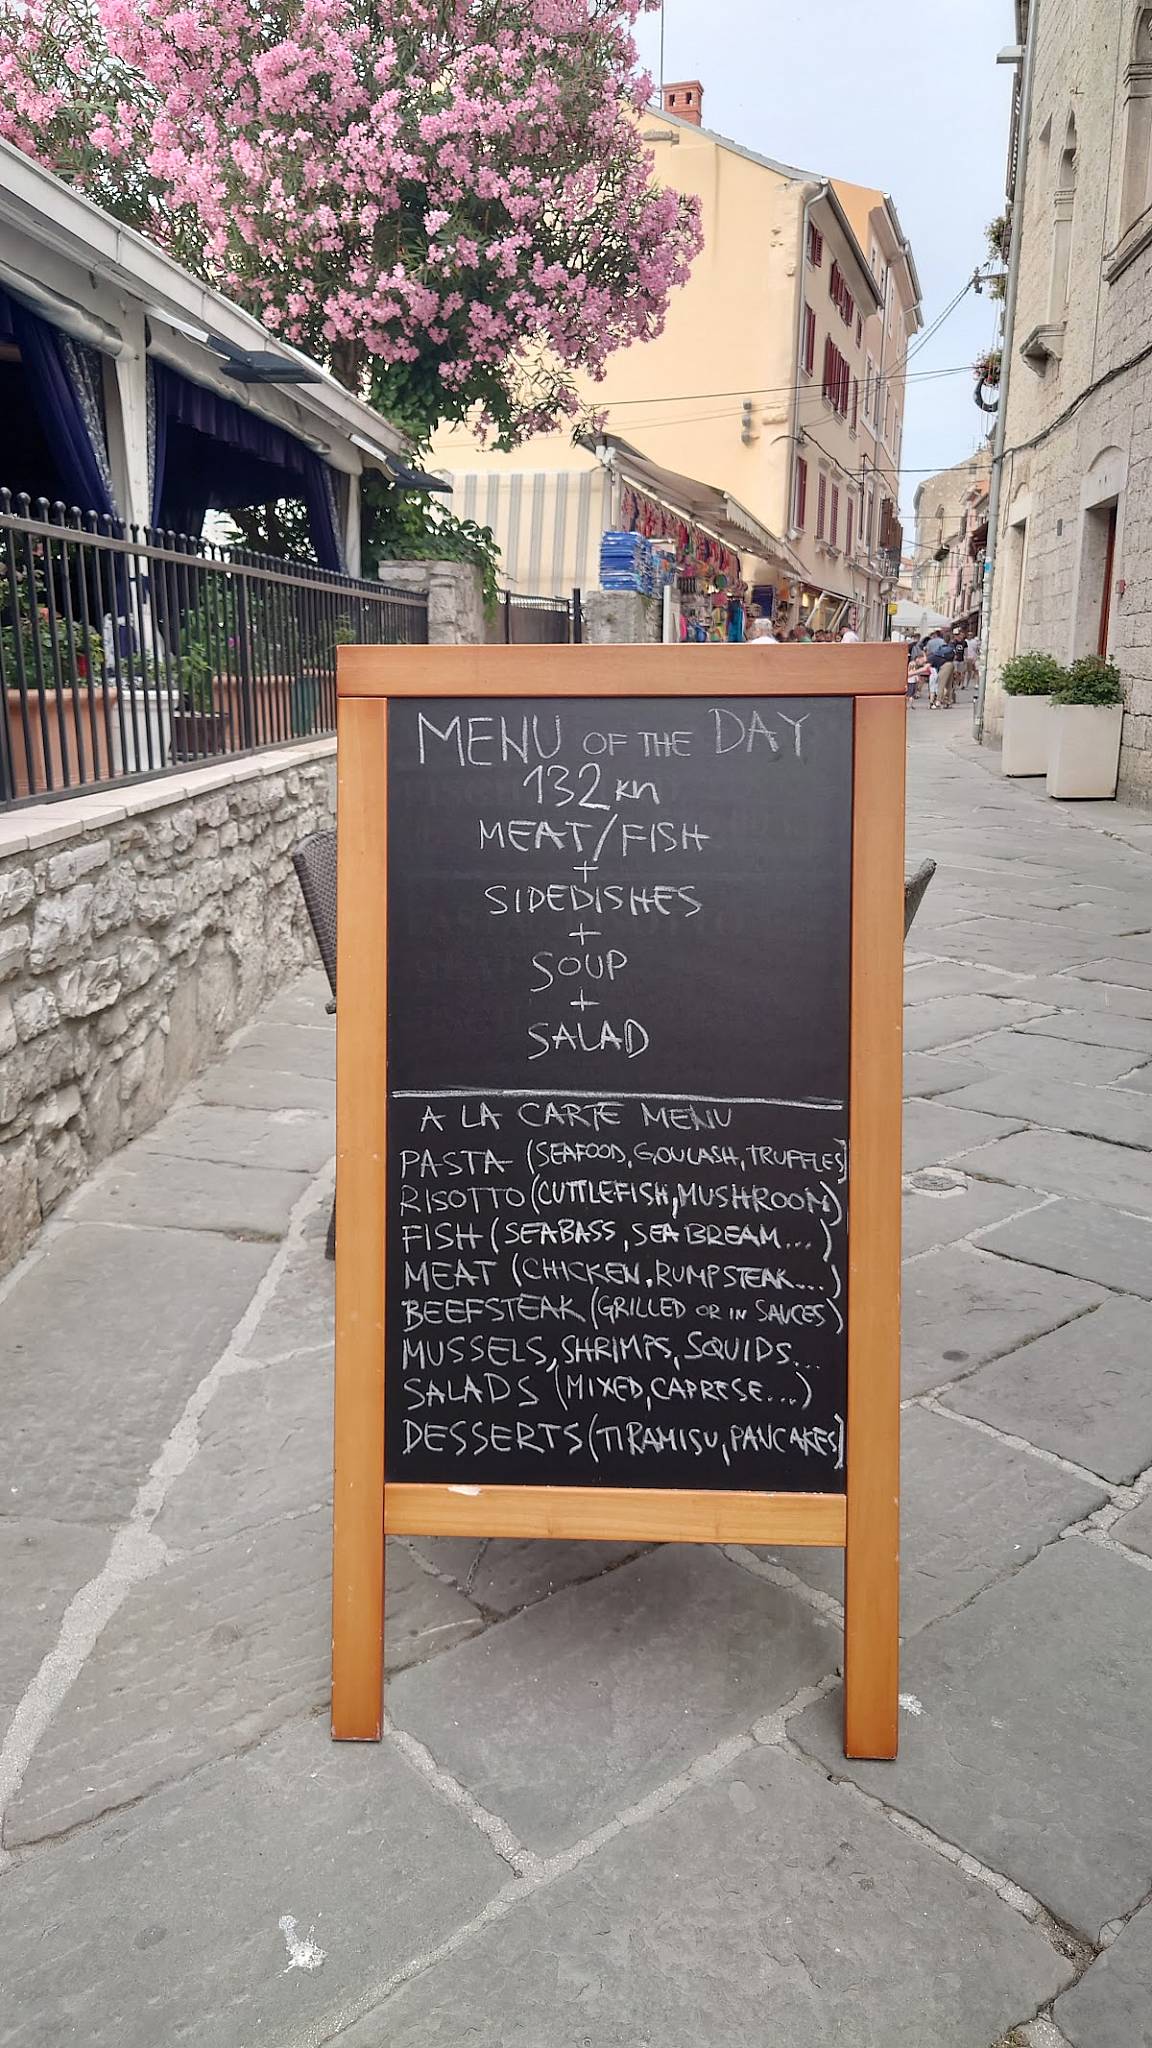 MENU OF THE DAY
132 kn
MEAT/FISH
+
SIDEDISHES
+
SOUP
+
SALAD
A LA CARTE MENU
PASTA (SEAFOOD, GOULASH, TRUFFLES)
RISOTTO (CUTTLEFISH, MUSHROOM)
FISH (SEABASS, SEA BREAM...)
MEAT (CHICKEN, RUMPSTEAK...)
BEEFSTEAK (GRILLED OR IN SAUCES)
MUSSELS, SHRIMPS, SQUIDS...
SALADS (MIXED, CAPRESE...)
DESSERTS (TIRAMISU, PANCAKES)